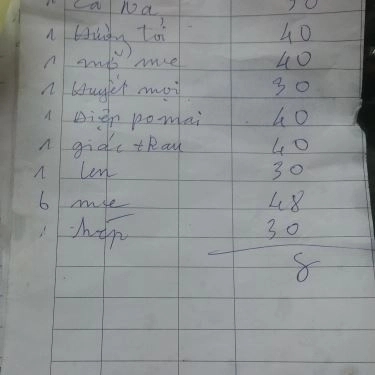 1 Cà Na 30
1 40
1 mỡ me 40
1 Huyết mọi 30
1 Điệp pomai 40
1 giác + Rau 40
1 len 30
6 me 48
hấp 30
8